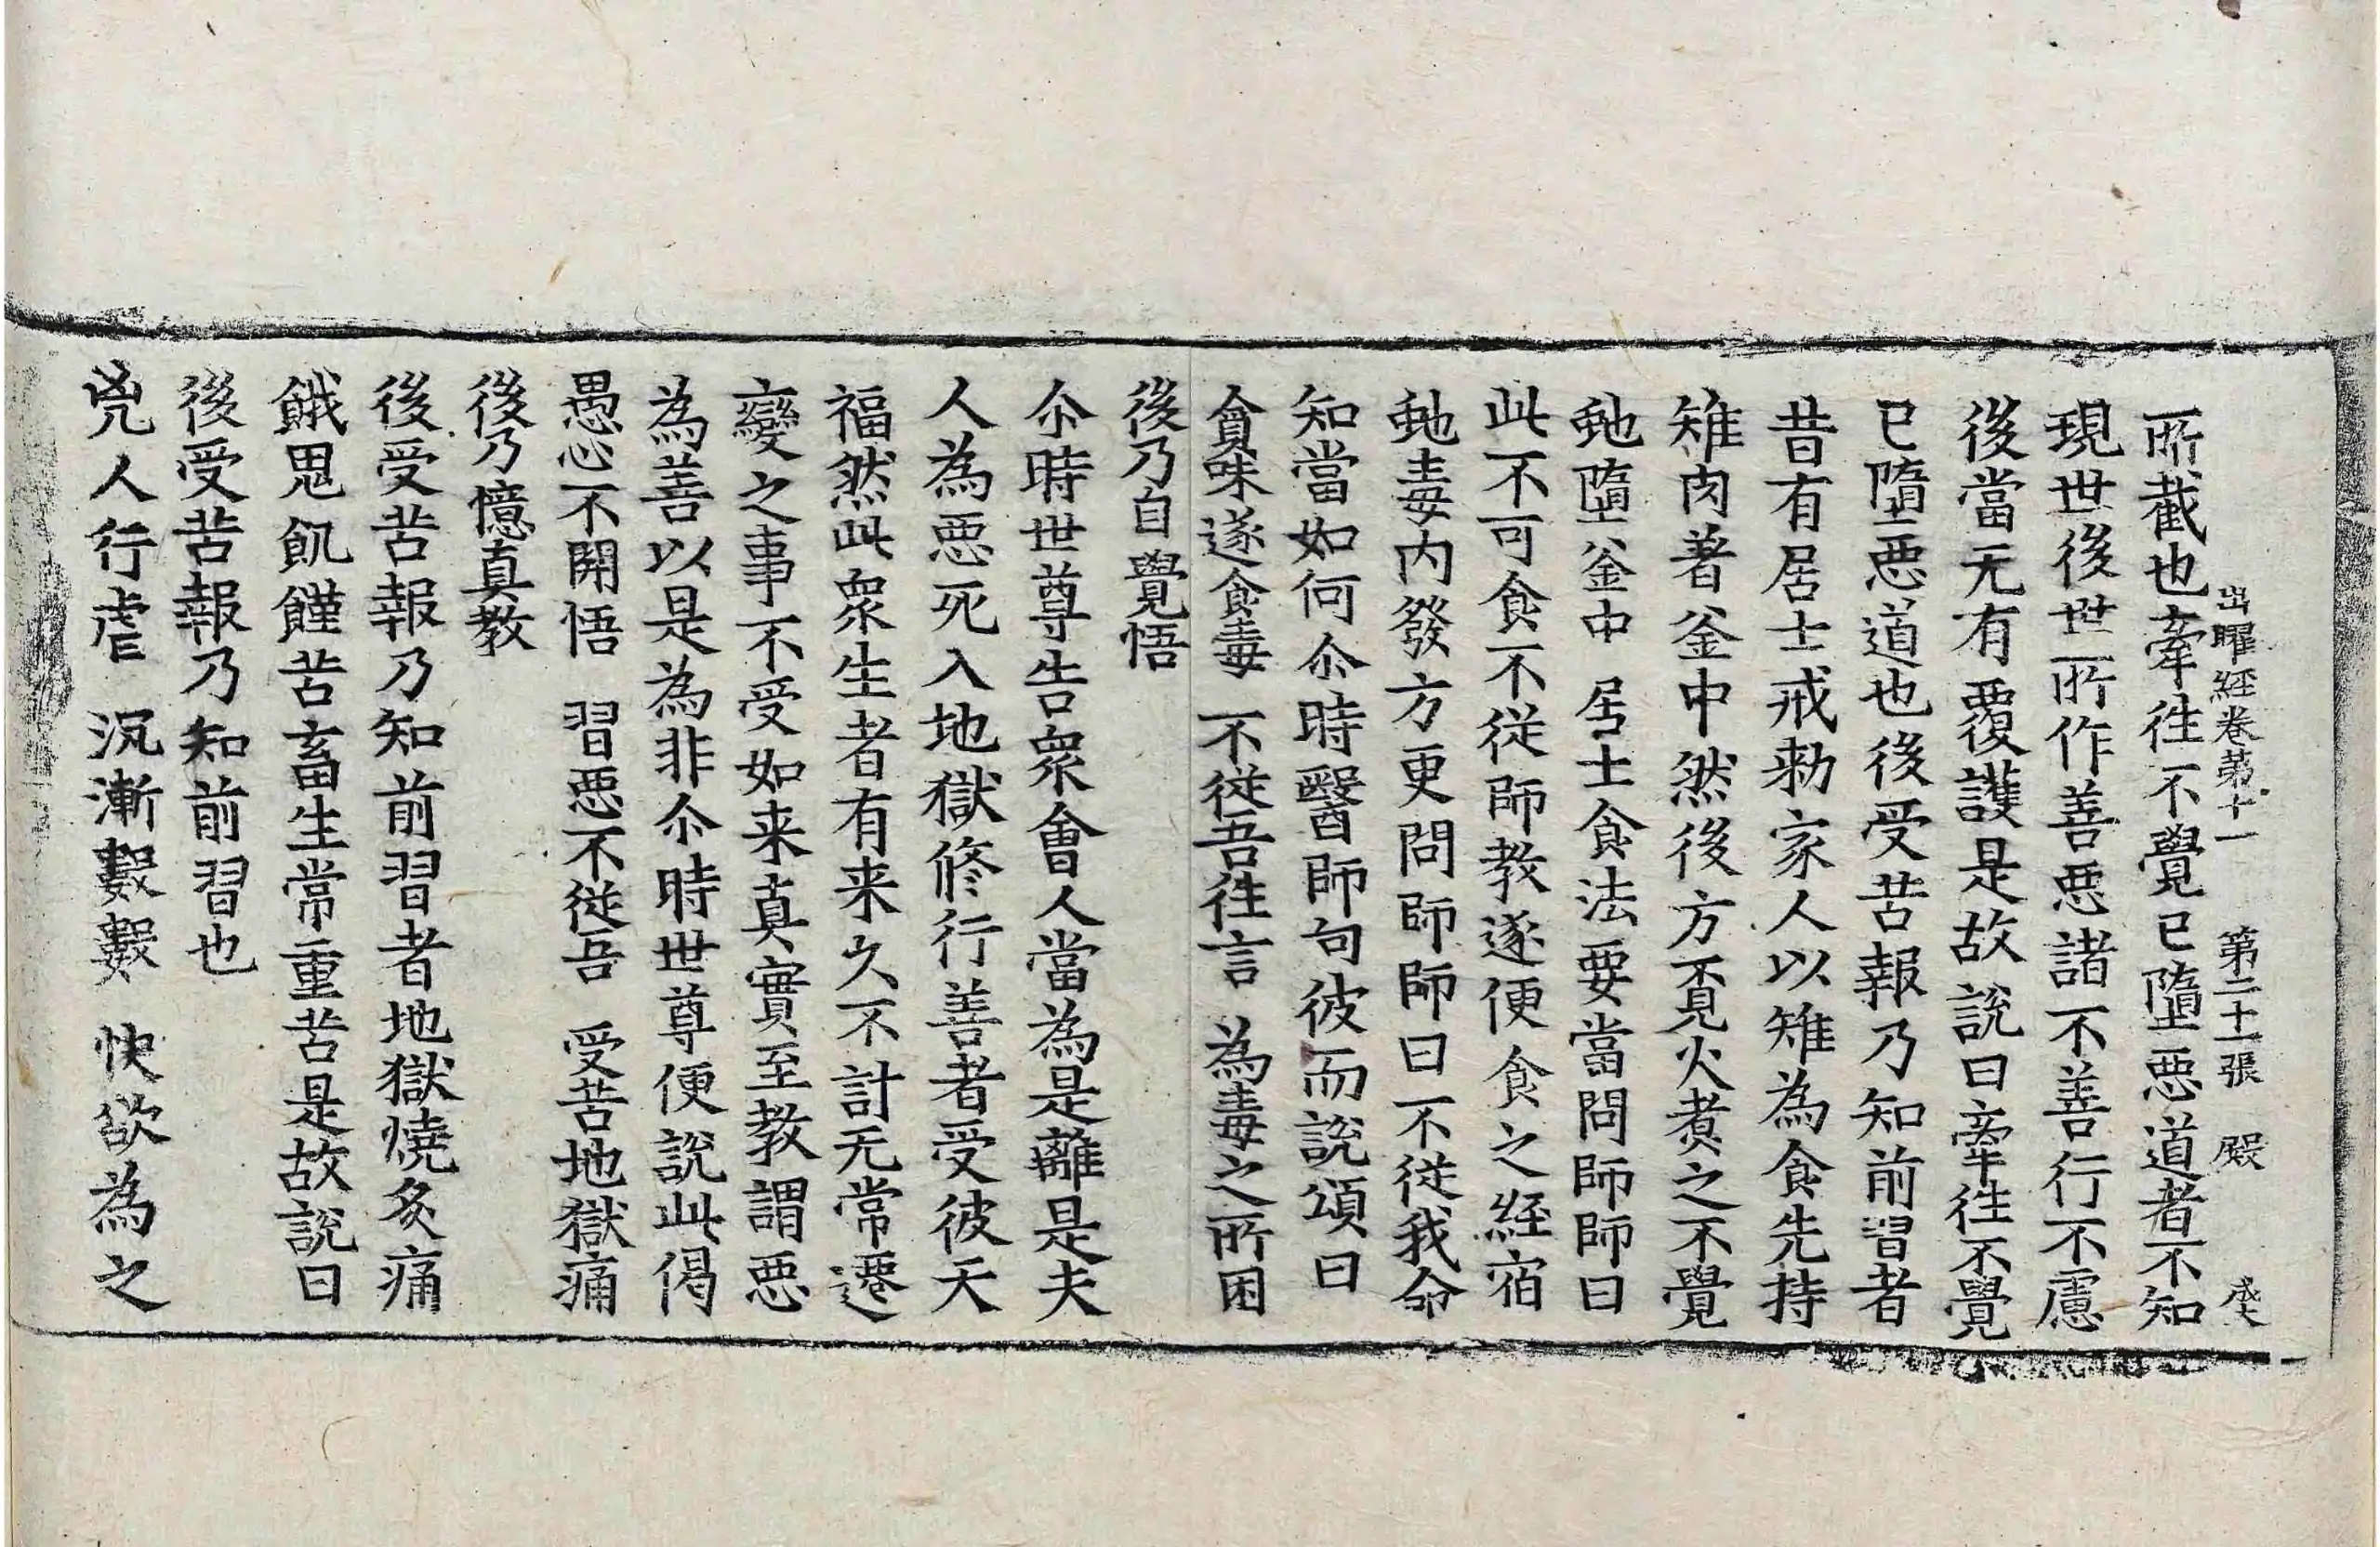 出曜經卷第十一 第二十一張 殿
所截也牽徃不覺已墮惡道者不知
現世後世所作善惡諸不善行不慮
後當无有覆護是故說曰牽徃不覺
已墮惡道也後受苦報乃知前習者
昔有居士戒勑家人以雉為食先持
雉肉著釜中然後方覓火煑之不覺
虵墮釜中居士食法要當問師師曰
此不可食不從師教遂便食之經宿
虵毒内發方更問師師曰不從我命
知當如何尒時醫師句彼而說頌曰
貪味遂食毒 不從吾徃言 為毒之所困
後乃自覺悟
尒時世尊告衆會人當為是離是夫
人為惡死入地獄修行善者受彼天
福然此衆生者有来久不計无常遷
變之事不受如来真實至教謂惡
為善以是為非尒時世尊便說此偈
愚心不開悟 習惡不從吾 受苦地獄痛
後乃憶真教
後受苦報乃知前習者地獄燒炙痛
餓鬼飢饉苦畜生常重苦是故說曰
後受苦報乃知前習也
兇人行虐 沉漸數數 快欲為之